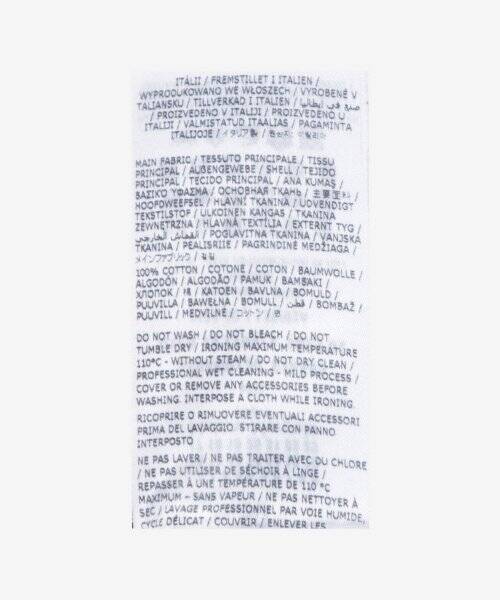 ITALII / FREMSTILLET I ITALIEN /
WYPRODUKOWANO WE WŁOSZECH / VYROBENÉ V
TALIANSKU / TILLVERKAD I ITALIEN / صنع في ايطاليا
/ PROIZVEDENO V ITALIJI / PROIZVEDENO U
ITALIJI / VALMISTATUD ITAALIAS / PAGAMINTA
ITALIJOJE / イタリア製 /
MAIN FABRIC / TESSUTO PRINCIPALE / TISSU
PRINCIPAL / AUßENGEWEBE / SHELL / TEJIDO
PRINCIPAL / TECIDO PRINCIPAL / ANA KUMAŞ /
ΒΑΖΙΚΟ ΥΦΑΣΜΑ / ОСНОВНАЯ ТКАНЬ /
HOOFDWEEFSEL / HLAVNÍ TKANINA / UDVENDIGT
TEKSTILSTOF / ULKOINEN KANGAS / TKANINA
ZEWNĘTRZNA / HLAVNÁ TEXTÍLIA / EXTERNT TYG /
القماش الخارجي / POGLAVITNA TKANINA / VANJSKA
TKANINA / PEALISRIIE / PAGRINDINĖ MEDŽIAGA /
メインファブリック /
100% COTTON / COTONE / COTON / BAUMWOLLE /
ALGODÓN / ALGODÃO / PAMUK / ΒΑΜΒΑΚΙ /
ХЛОПОК / 棉 / KATOEN / BAVLNA / BOMULD /
PUUVILLA / BAWEŁNA / BOMULL / قطن / BOMBAŽ /
PUUVILL / MEDVILNĖ / コットン / 면
DO NOT WASH / DO NOT BLEACH / DO NOT
TUMBLE DRY / IRONING MAXIMUM TEMPERATURE
110°C - WITHOUT STEAM / DO NOT DRY CLEAN /
PROFESSIONAL WET CLEANING - MILD PROCESS /
COVER OR REMOVE ANY ACCESSORIES BEFORE
WASHING. INTERPOSE A CLOTH WHILE IRONING.
RICOPRIRE O RIMUOVERE EVENTUALI ACCESSORI
PRIMA DEL LAVAGGIO. STIRARE CON PANNO
INTERPOSTO
NE PAS LAVER / NE PAS TRAITER AVEC DU CHLORE
/ NE PAS UTILISER DE SÉCHOIR À LINGE /
REPASSER À UNE TEMPÉRATURE DE 110 °C
MAXIMUM – SANS VAPEUR / NE PAS NETTOYER À
SEC / LAVAGE PROFESSIONNEL PAR VOIE HUMIDE,
CYCLE DÉLICAT / COUVRIR / ENLEVER LES